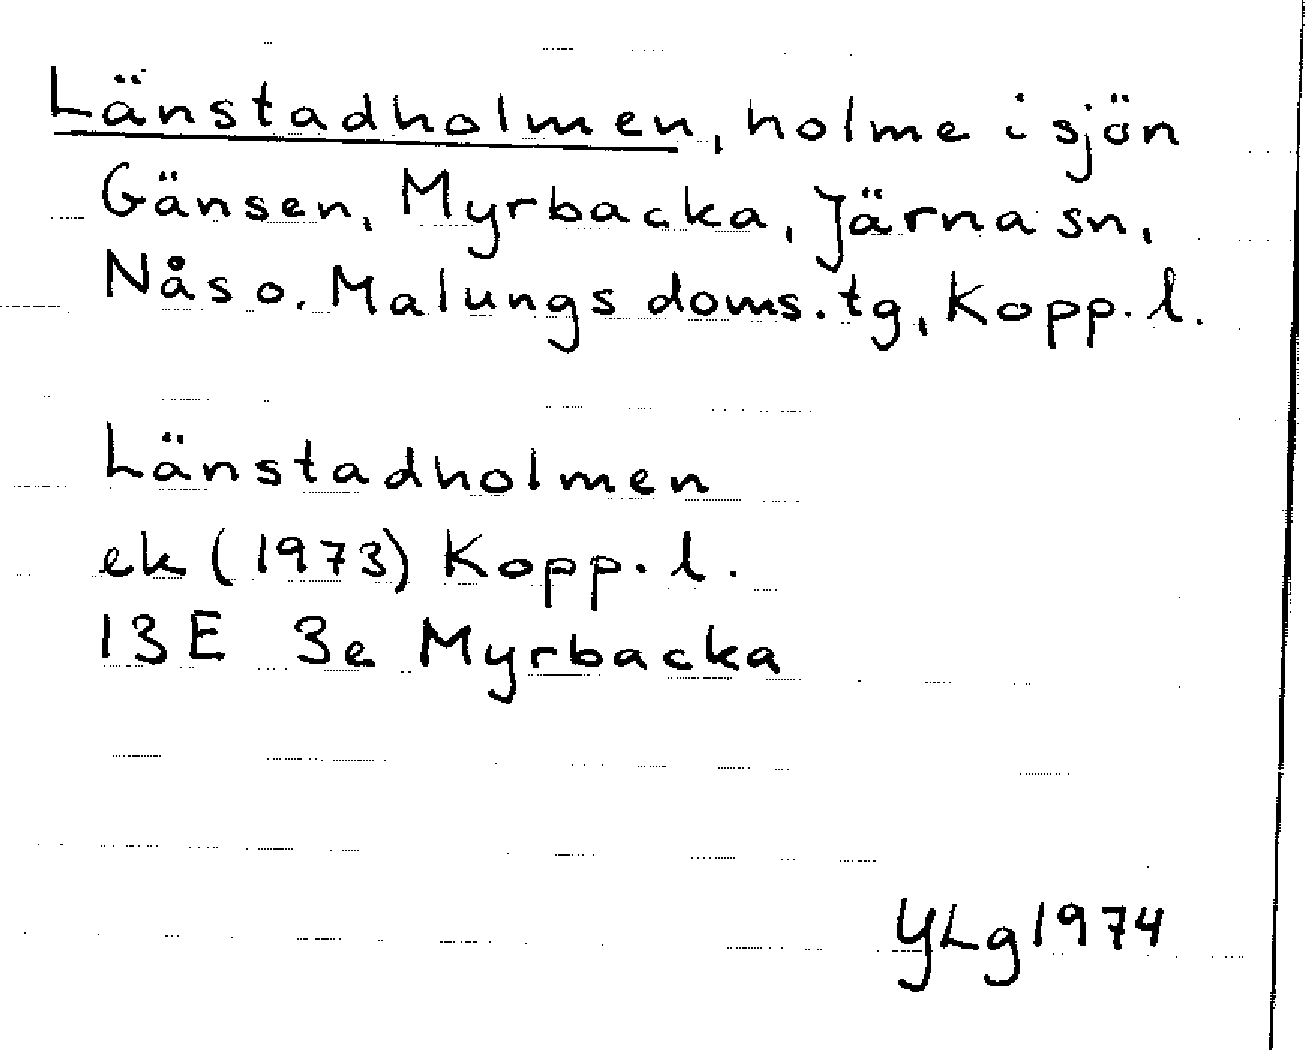 Länstadholmen, holme i sjön
Gänsen, Myrbacka, Järna sn,
Nås o. Malungs doms.tg, Kopp. l.
Länstadholmen
ek (1973) Kopp. l.
13E 3e Myrbacka
YLg 1974